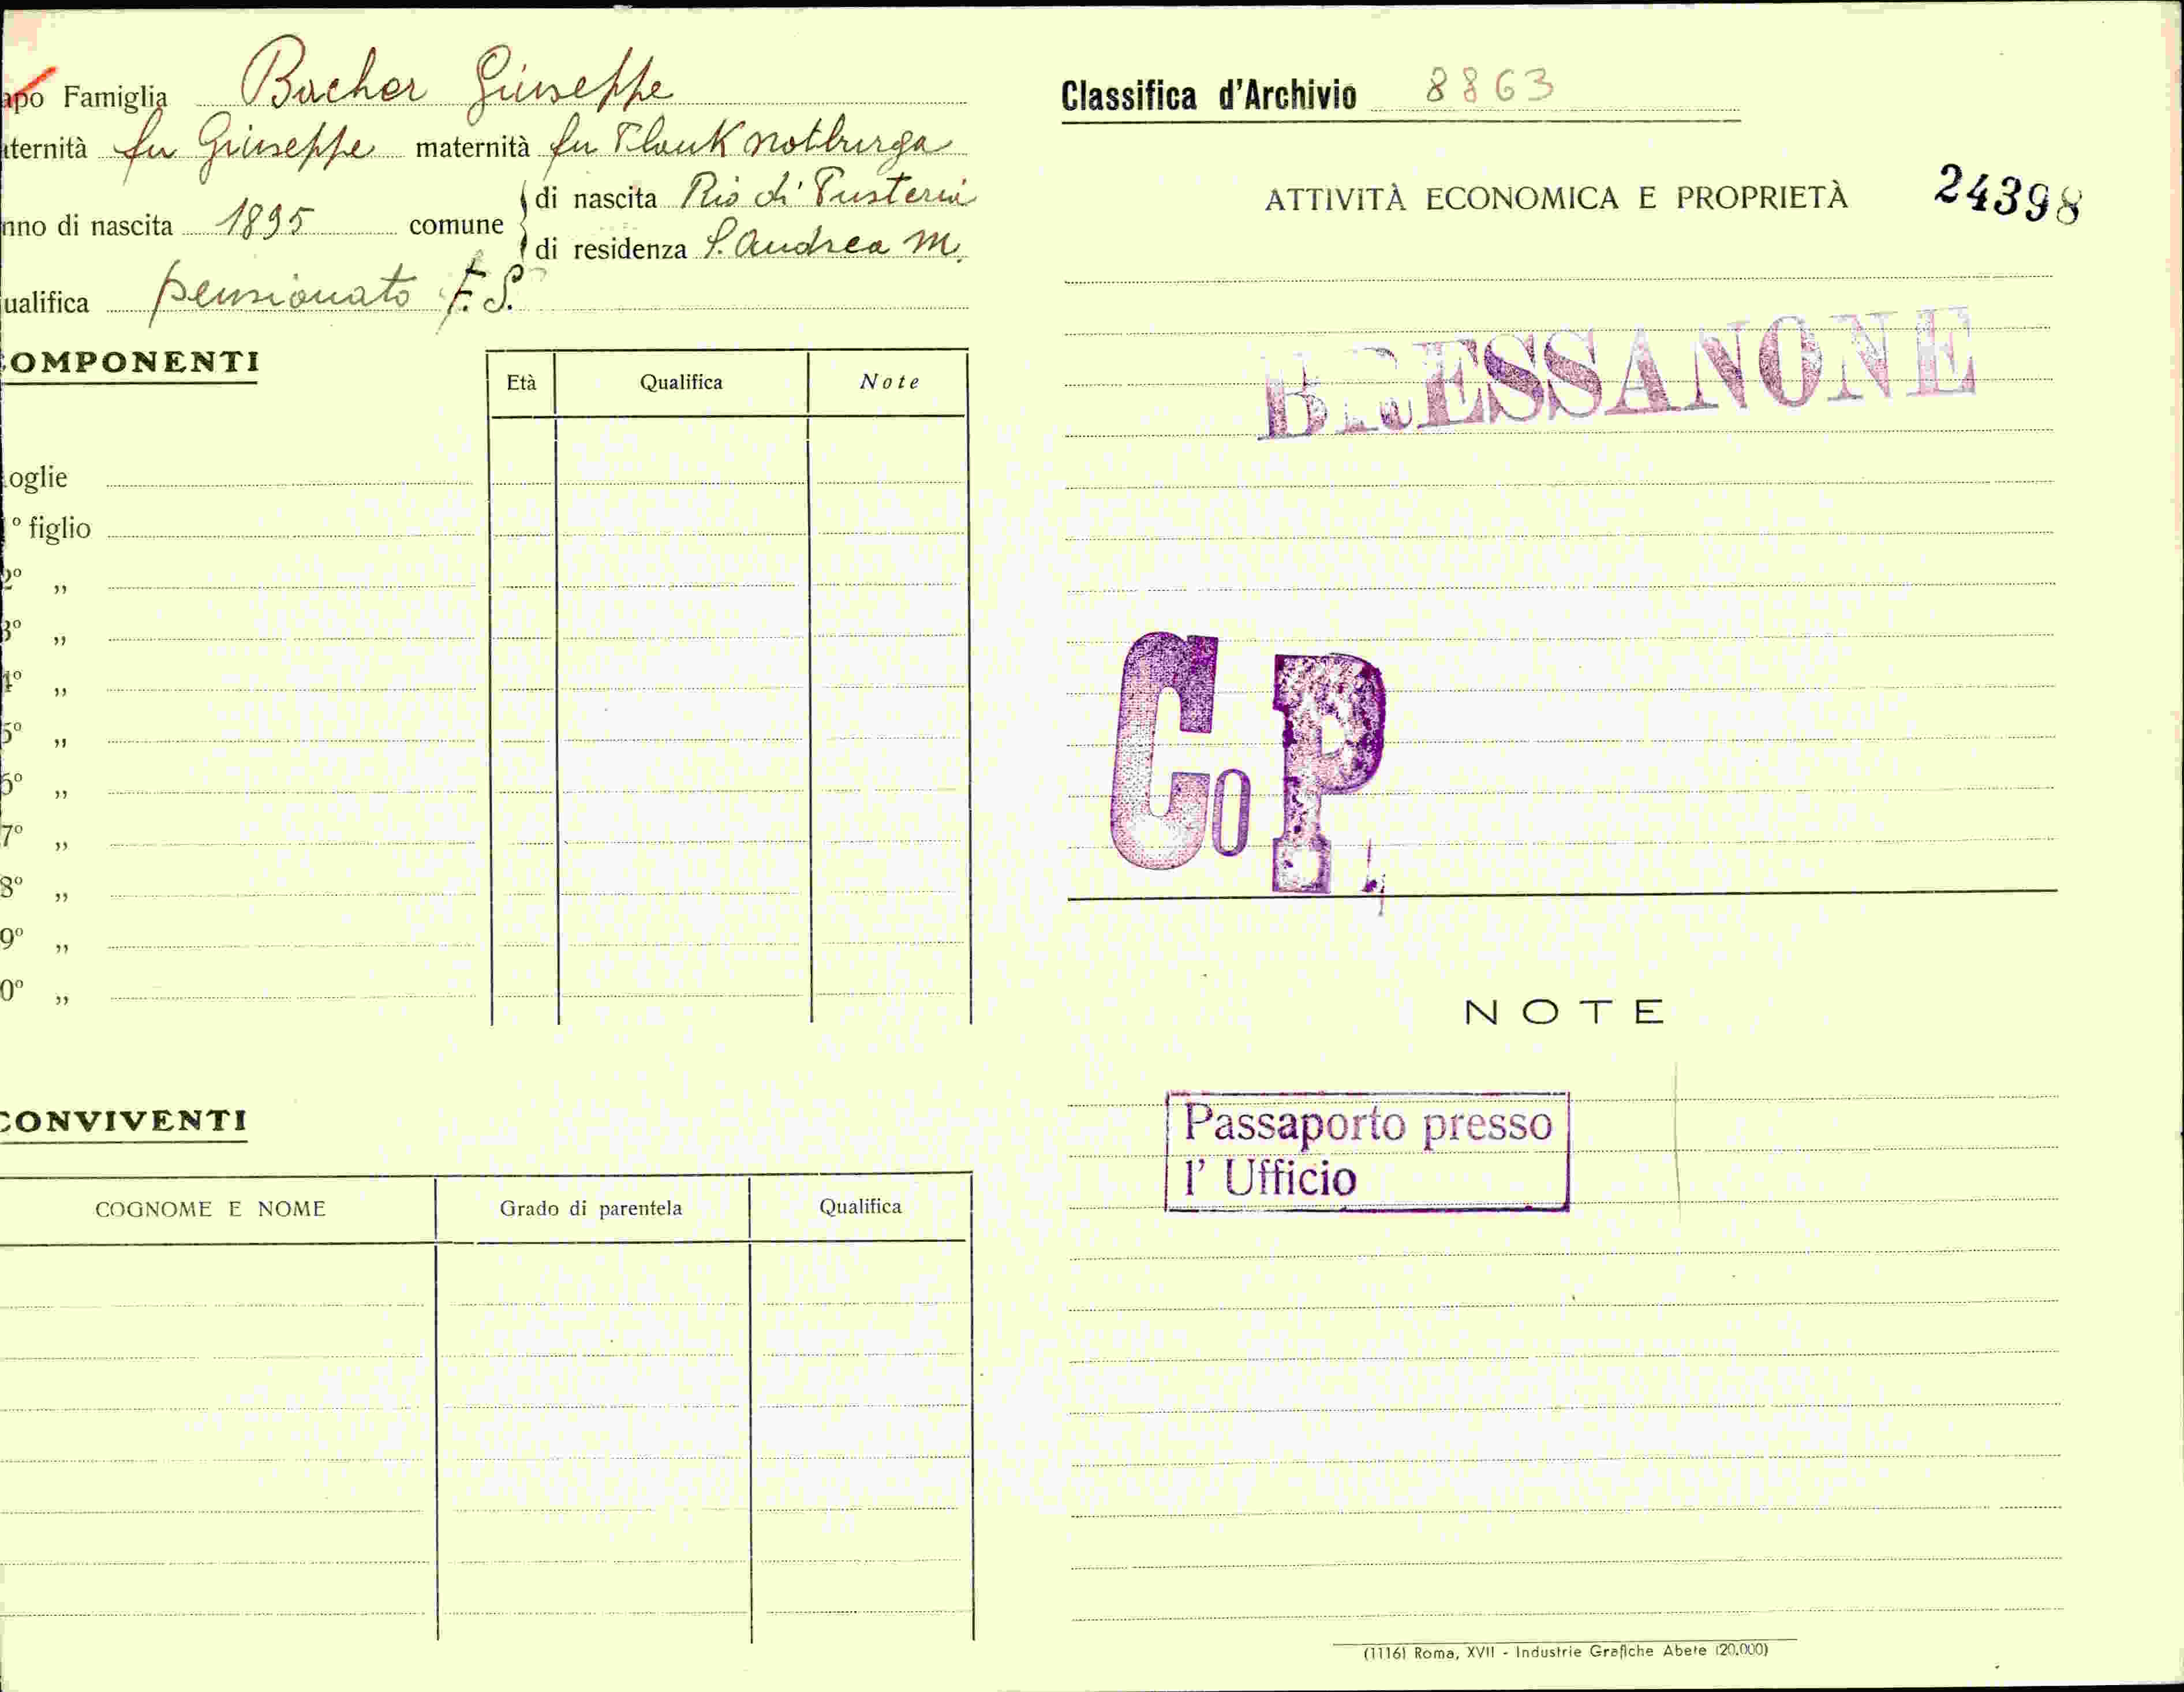 apo Famiglia Bacher Giuseppe
aternità fu Giuseppe maternità fu Plank Notburga
nno di nascita 1895 comune di nascita Rio di Pusteria
di residenza S. Andrea M.
ualifica pensionato F.S.
COMPONENTI
Età Qualifica Note
oglie
1° figlio
2° „
3° „
4° „
5° „
6° „
7° „
8° „
9° „
0° „
CONVIVENTI
COGNOME E NOME Grado di parentela Qualifica
Classifica d'Archivio 8863
ATTIVITÀ ECONOMICA E PROPRIETÀ 24398
BRESSANONE
Co P.
NOTE
Passaporto presso
l' Ufficio
(1116) Roma, XVII - Industrie Grafiche Abete (20.000)